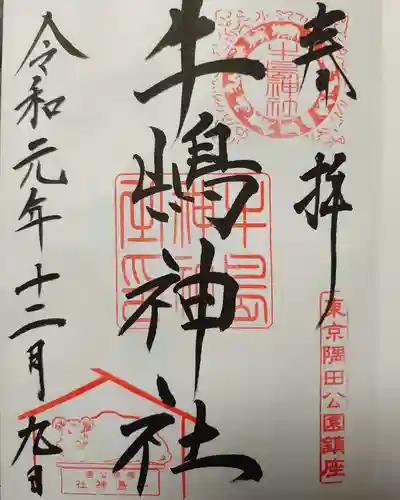 奉拝
牛嶋神社
令和元年十二月九日
牛嶋神社
牛島神社之印
東京隅田公園鎮座